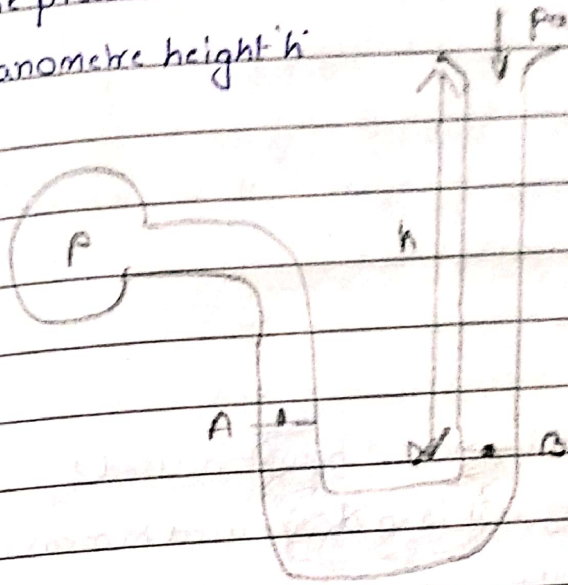 anometre height 'h'
P
h
A
B